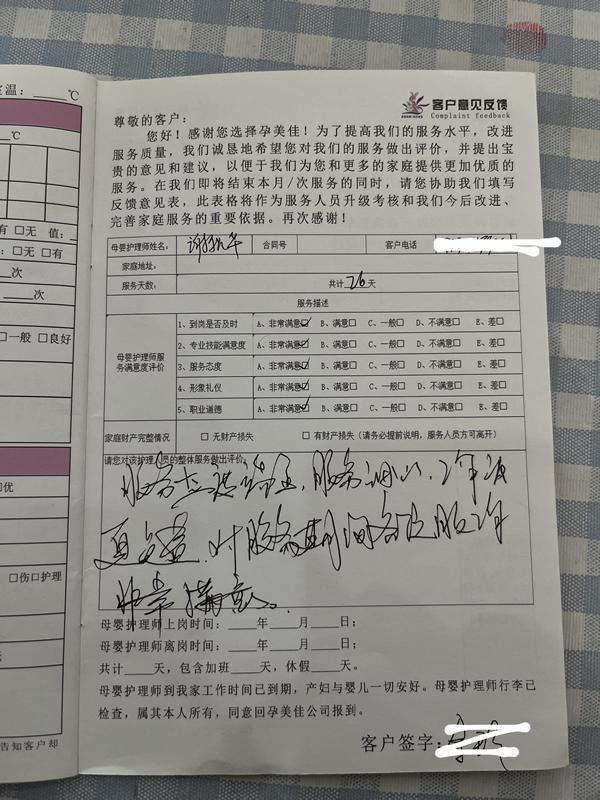 室温：____℃
℃
□无 值：
：□无 □有
____次
____次
□一般 □良好
□优
□伤口护理
告知客户却
客户意见反馈
Complaint feedback
尊敬的客户：
您好！感谢您选择孕美佳！为了提高我们的服务水平，改进
服务质量，我们诚恳地希望您对我们的服务做出评价，并提出宝
贵的意见和建议，以便于我们为您和更多的家庭提供更加优质的
服务。在我们即将结束本月/次服务的同时，请您协助我们填写
反馈意见表，此表格将作为服务人员升级考核和我们今后改进、
完善家庭服务的重要依据。再次感谢！
母婴护理师姓名： 合同号 客户电话
家庭地址：
服务天数： 共计26天
服务描述
母婴护理师服
务满意度评价
1、到岗是否及时 A、非常满意☑ B、满意□ C、一般□ D、不满意□ E、差□
2、专业技能满意度 A、非常满意☑ B、满意□ C、一般□ D、不满意□ E、差□
3、服务态度 A、非常满意☑ B、满意□ C、一般□ D、不满意□ E、差□
4、形象礼仪 A、非常满意☑ B、满意□ C、一般□ D、不满意□ E、差□
5、职业道德 A、非常满意☑ B、满意□ C、一般□ D、不满意□ E、差□
家庭财产完整情况 □ 无财产损失 □ 有财产损失（请务必提前说明，服务人员方可离开）
请您对该护理人员的整体服务做出评价
服务 服务
对服务期间各项服务
非常满意。
母婴护理师上岗时间：____年____月____日；
母婴护理师离岗时间：____年____月____日；
共计____天，包含加班____天，休假____天。
母婴护理师到我家工作时间已到期，产妇与婴儿一切安好。母婴护理师行李已
检查，属其本人所有，同意回孕美佳公司报到。
客户签字：